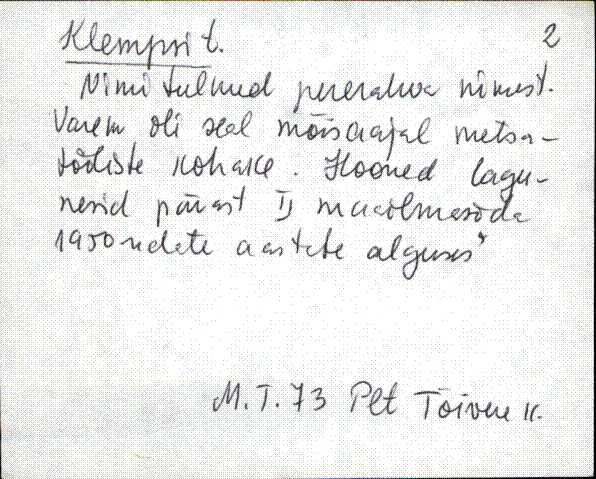 Klempsi t. 2
Nimi tulnud pererahva nimest.
Varem oli seal mõisaajal metsa-
tööliste kohake. Hooned lagu-
nesid pärast II maailmasõda
1950-ndate aastate alguses
M.T. 73 Plt Tõivere k.